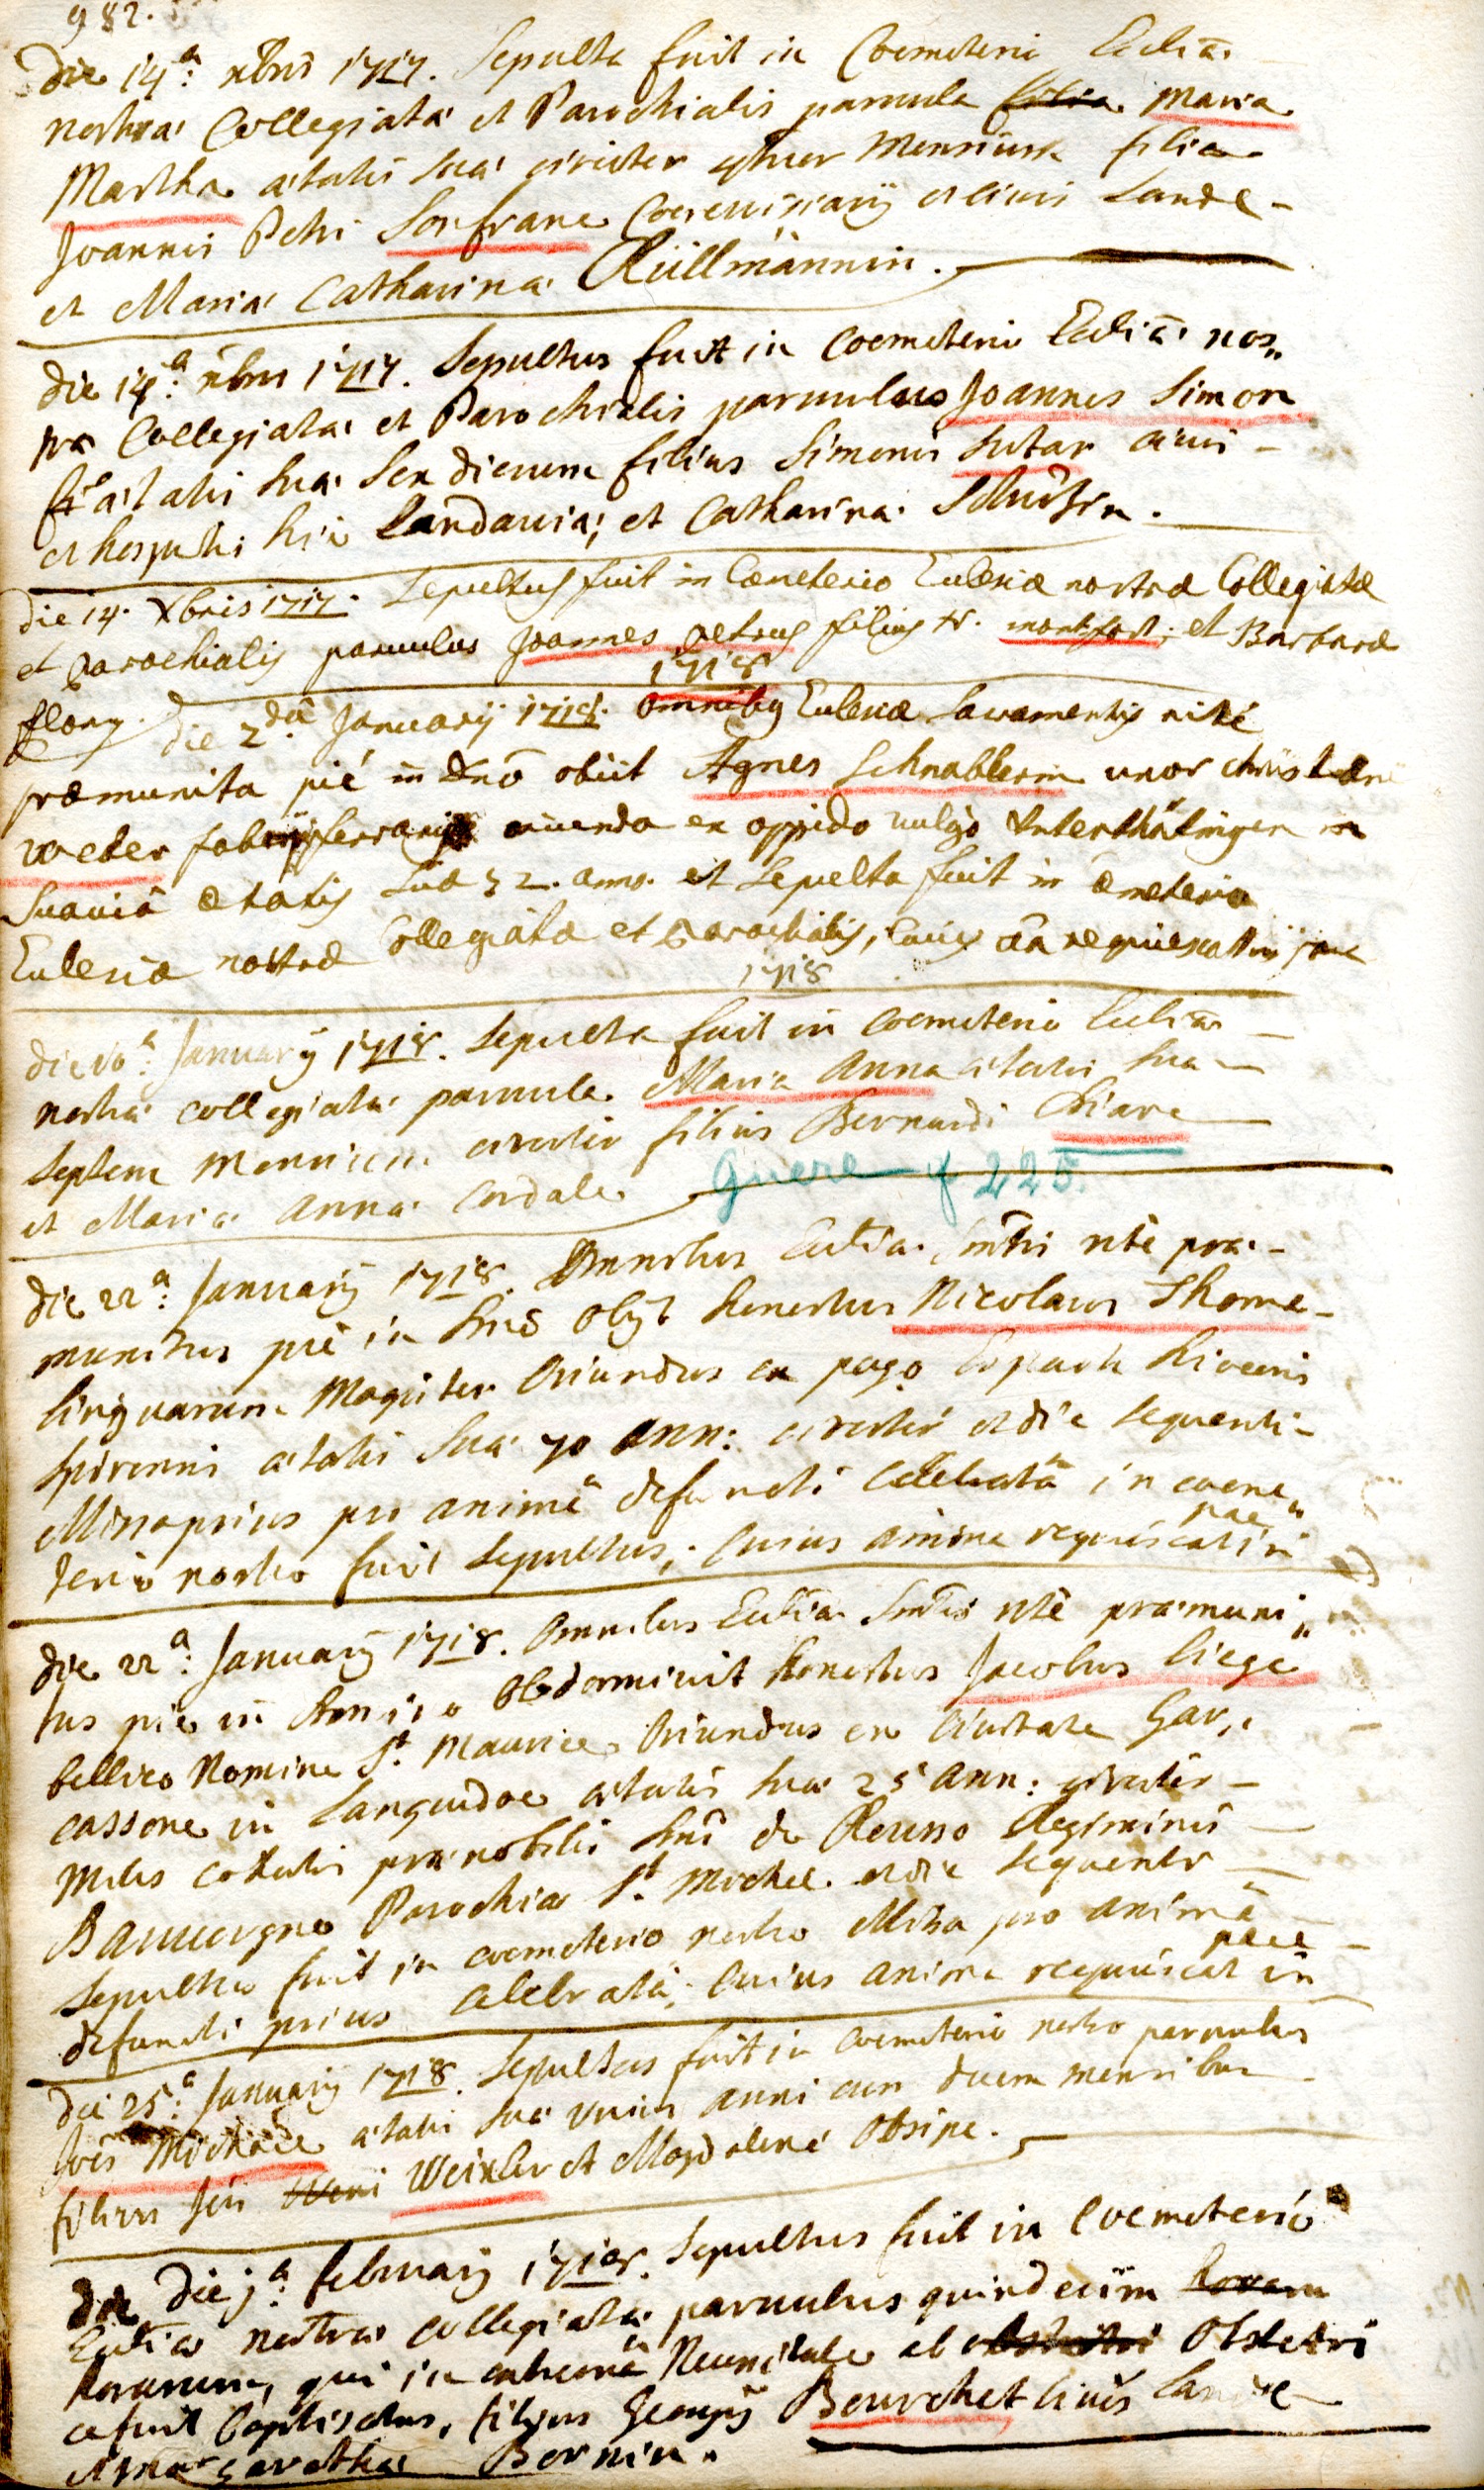 982.
Die 14a: xbris 1717. Sepulta fuit in Coemeterio Eccliæ
nostræ Collegiatæ et Parochialis parvula filia Maria
Martha ætatis suæ circiter mensium filia
Joannis Petri Sonfrane et civis Lande-
et Mariæ Catharinæ Rüllmännin.
Die 14a: xbris 1717. Sepultus fuit in Coemeterio Eccliæ nos„
træ Collegiatæ et Parochialis parvulus Joannes Simon
ætatis suæ sex dierum filius Simonis Sutar civis
et hospitis hic Landaviæ, et Catharinæ
Die 14. Xbris 1717. Sepultus fuit in Cœmeterio Ecclesiæ nostræ Collegiatæ
et Parochialis parvulus Joannes petrus filius montfort, et Barbaræ
flory.
1718
Die 2da January 1718. Omnibus Ecclesiæ Sacramentis rité
præmunita pié in dnō obiit Agnes Schnablerin uxor christiani
weber fabri ferrarij oriunda ex oppido vulgò Unterthätingen in
Suaviâ ætatis suæ 32. anno. et sepulta fuit in Cœmeterio
Ecclesiæ nostræ Collegiatæ et Parochialis, cuius aīa requiescat in pace
1718
Die 10a: January 1718. Sepulta fuit in Coemeterio Eccliæ
nostræ collegiatæ parvula Maria Anna ætatis suæ
septem mensium circiter filius Bernardi Chiare
et Mariæ Annæ Cordale Guere f 225.
Die 22a: January 1718. Omnibus Eccliæ Smtis ritè præ-
munitus piè in Dnō obyt honestus Nicolaus Thome
linguarum Magister Oriundus ex pago
ætatis suæ 70 ann: circiter et die sequenti
Missa prius pro animâ defuncti celebratâ in coeme„
terio nostro fuit sepultus, cuius anima requiescat in pace
Die 22a: January 1718. Omnibus Eccliæ Smtis ritè præmuni„
tus piè in Domino Obdormivit honestus Jacobus Liege
bellico Nomine St Maurice Oriundus ex Civitate Car„
cassone in Languedoc ætatis suæ 25 ann: circiter
Miles prænobilis Dni de Regiminis
Bauvergne Parochiæ St Michel et die sequenti
Sepultus fuit in coemeterio nostro Missa pro animâ
defuncti prius celebratâ, cuius anima requiescat in pace
Die 25a: January 1718. Sepultus fuit in coemeterio nostro parvulus
Joēs Michael ætatis suæ unius anni cum duem mensibus
filius Jōis Weixler et Magdalenæ Obsipe.
Die Die ja: February 1718. Sepultus fuit in Coemeterio
Eccliæ nostræ collegiatæ parvulus quindecim horam
horarum, qui in necessitate ab Obstetri
ce fuit baptisatus, filius Georgij Bourchet civis
et Margarethæ Bornin.